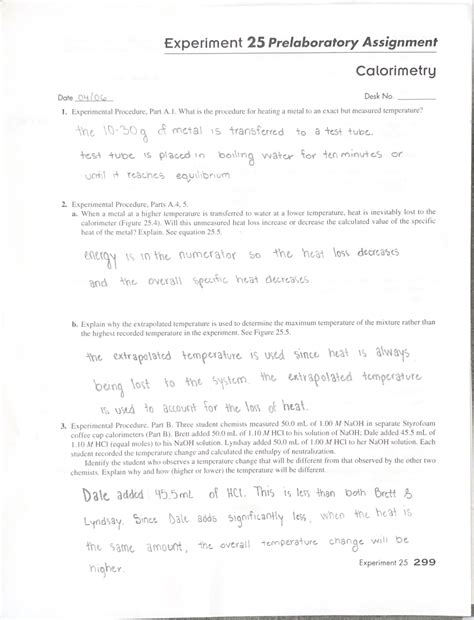 Experiment 25 Prelaboratory Assignment
Calorimetry
Date 04/06 Desk No.
1. Experimental Procedure, Part A.1. What is the procedure for heating a metal to an exact but measured temperature?
the 10-30g of metal is transferred to a test tube.
test tube is placed in boiling water for ten minutes or
until it reaches equilibrium
2. Experimental Procedure, Parts A.4, 5.
a. When a metal at a higher temperature is transferred to water at a lower temperature, heat is inevitably lost to the
calorimeter (Figure 25.4). Will this unmeasured heat loss increase or decrease the calculated value of the specific
heat of the metal? Explain. See equation 25.5.
energy is in the numerator so the heat loss decreases
and the overall specific heat decreases.
b. Explain why the extrapolated temperature is used to determine the maximum temperature of the mixture rather than
the highest recorded temperature in the experiment. See Figure 25.5.
the extrapolated temperature is used since heat is always
being lost to the system. the extrapolated temperature
is used to account for the loss of heat.
3. Experimental Procedure, Part B. Three student chemists measured 50.0 mL of 1.00 M NaOH in separate Styrofoam
coffee cup calorimeters (Part B). Brett added 50.0 mL of 1.10 M HCl to his solution of NaOH; Dale added 45.5 mL of
1.10 M HCl (equal moles) to his NaOH solution. Lyndsay added 50.0 mL of 1.00 M HCl to her NaOH solution. Each
student recorded the temperature change and calculated the enthalpy of neutralization.
Identify the student who observes a temperature change that will be different from that observed by the other two
chemists. Explain why and how (higher or lower) the temperature will be different.
Dale added 45.5mL of HCl. This is less than both Brett &
Lyndsay. Since Dale adds significantly less, when the heat is
the same amount, the overall temperature change will be
higher.
Experiment 25 299